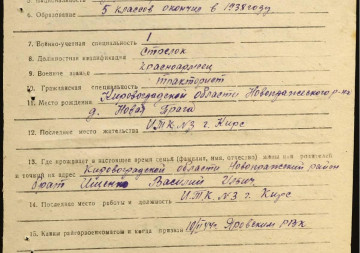 6. Образование 5 классов окончил в 1938 году
7. Военно-учетная специальность 1
8. Должностная квалификация Стрелок
9. Военное звание Красноармеец
10. Гражданская специальность тракторист
11. Место рождения Кировоградской области Новопражского р-на
д. Новая Прага
12. Последнее место жительства И.Т.К. №3 г. Кирс
13. Где проживает в настоящее время семья (фамилия, имя, отчество) жены или родителей
и точный их адрес Кировоградской области Новопражский район
брат Василий
14. Последнее место работы и должность И.Т.К. №3 г. Кирс
15. Каким райвоенкоматом и когда призван Яровским РВК